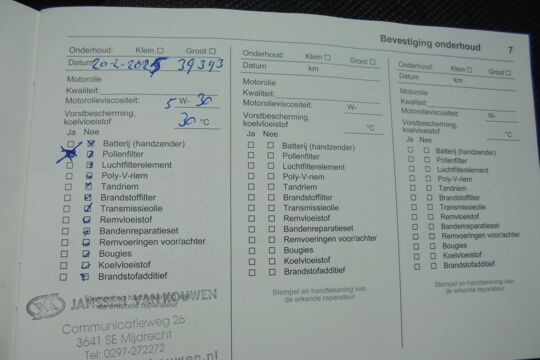 Bevestiging onderhoud 7
Onderhoud: Klein Groot
Datum 20-2-2025 39343
Motorolie
Kwaliteit:
Motorolieviscositeit: 5 W- 30
Vorstbescherming,
koelvloeistof 30 °C
Ja Nee
Batterij (handzender)
Pollenfilter
Luchtfilterelement
Poly-V-riem
Tandriem
Brandstoffilter
Transmissieolie
Remvloeistof
Bandenreparatieset
Remvoeringen voor/achter
Bougies
Koelvloeistof
Brandstofadditief
Stempel en handtekening van
de erkende reparateur
JAN VAN KOUWEN
Communicatieweg 26
3641 SE Mijdrecht
Tel: 0297-272272
Onderhoud: Klein Groot
Datum km
Motorolie
Kwaliteit:
Motorolieviscositeit: W-
Vorstbescherming,
koelvloeistof °C
Ja Nee
Batterij (handzender)
Pollenfilter
Luchtfilterelement
Poly-V-riem
Tandriem
Brandstoffilter
Transmissieolie
Remvloeistof
Bandenreparatieset
Remvoeringen voor/achter
Bougies
Koelvloeistof
Brandstofadditief
Stempel en handtekening van
de erkende reparateur
Onderhoud: Klein Groot
Datum km
Motorolie
Kwaliteit:
Motorolieviscositeit: W-
Vorstbescherming,
koelvloeistof °C
Ja Nee
Batterij (handzender)
Pollenfilter
Luchtfilterelement
Poly-V-riem
Tandriem
Brandstoffilter
Transmissieolie
Remvloeistof
Bandenreparatieset
Remvoeringen voor/achter
Bougies
Koelvloeistof
Brandstofadditief
Stempel en handtekening van
de erkende reparateur